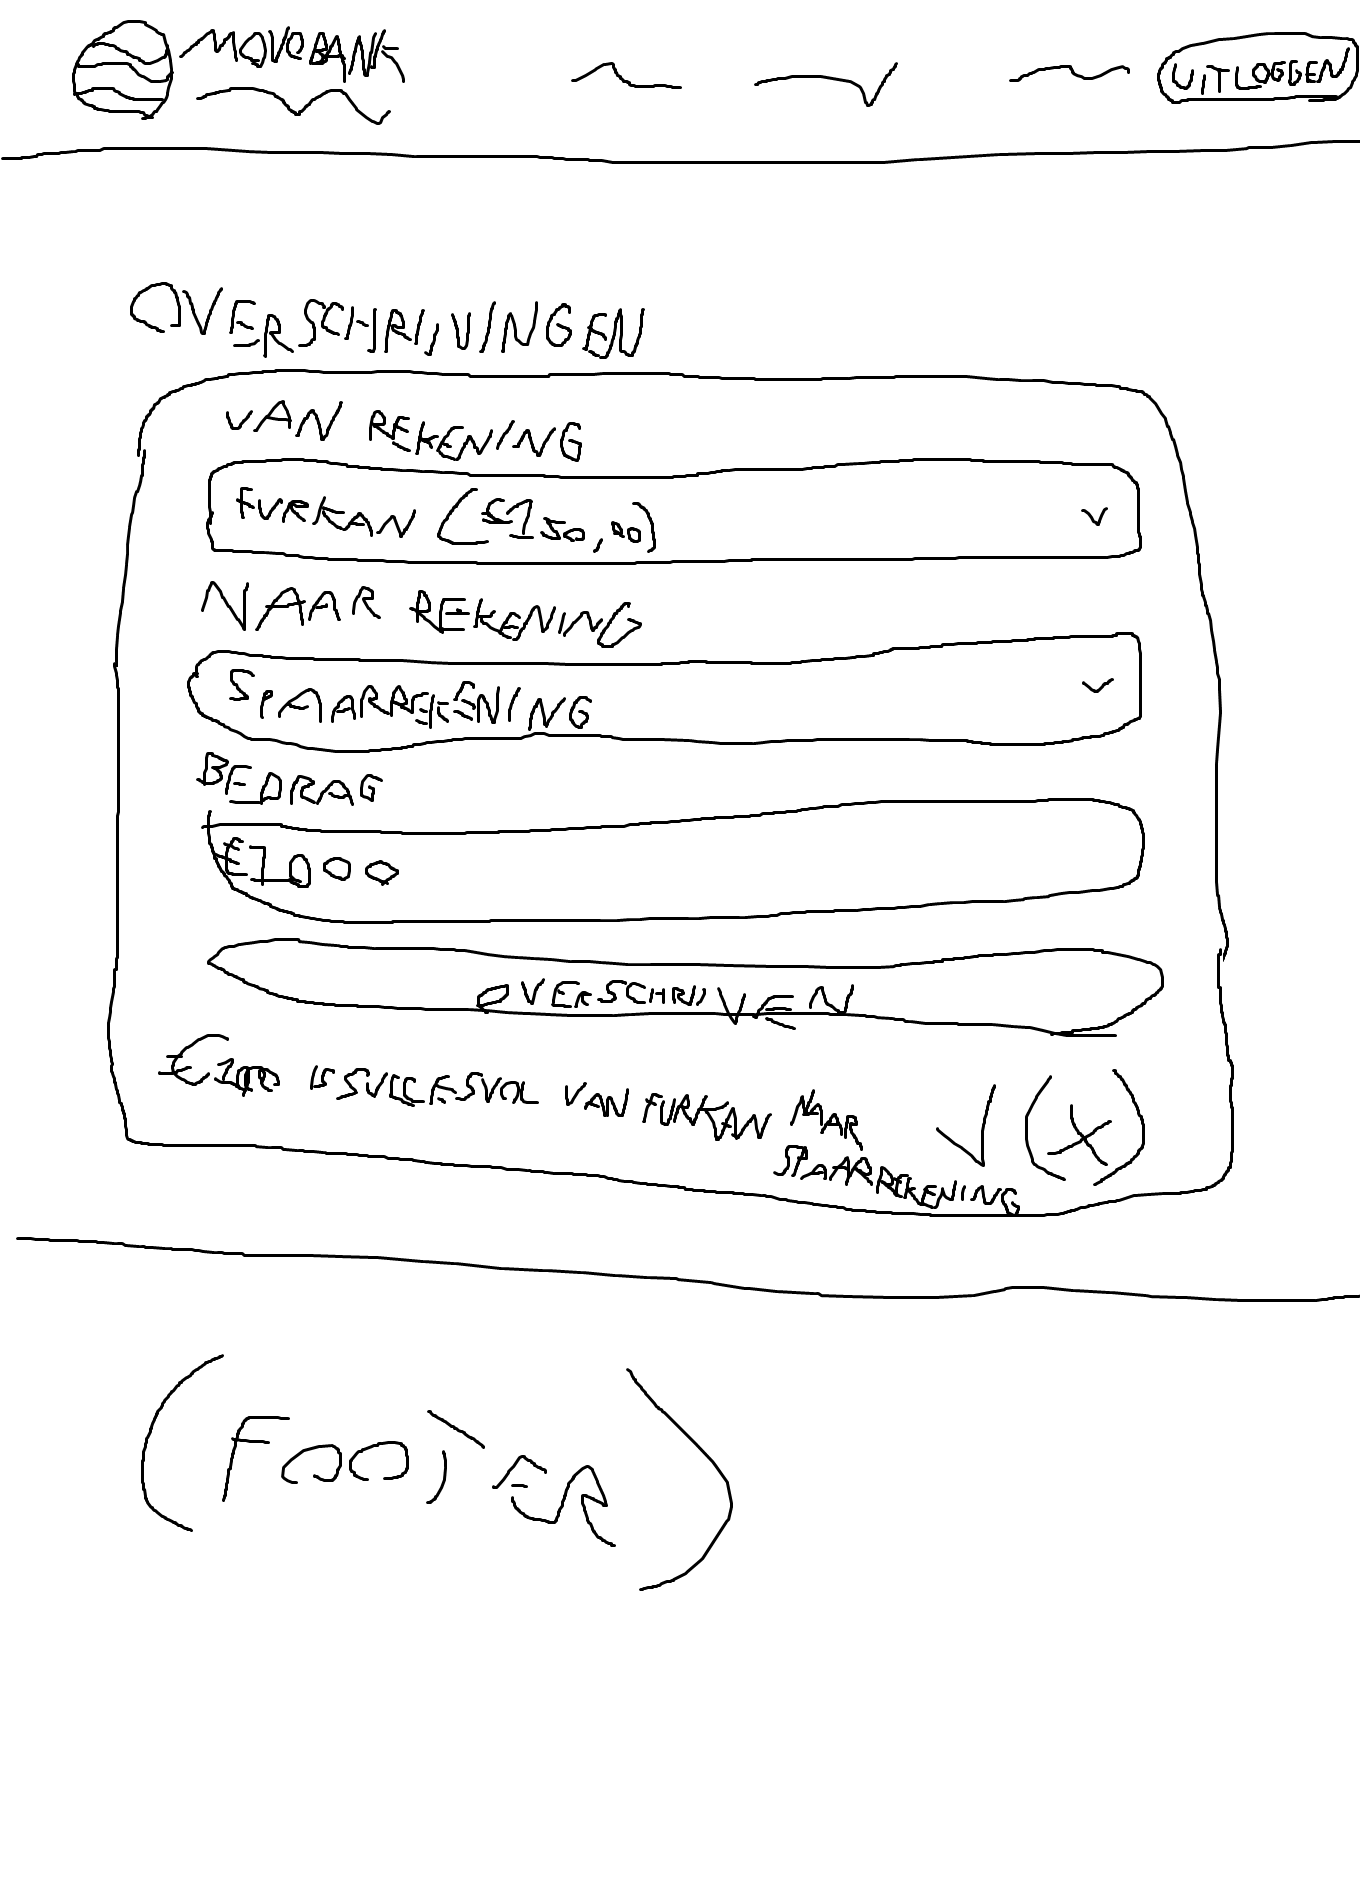 MOVOBANK
UITLOGGEN
OVERSCHRIJVINGEN
VAN REKENING
FURKAN (€150,00)
NAAR REKENING
SPAARREKENING
BEDRAG
€1000
OVERSCHRIJVEN
€1000 IS SUCCESVOL VAN FURKAN NAAR
SPAARREKENING
(FOOTER)